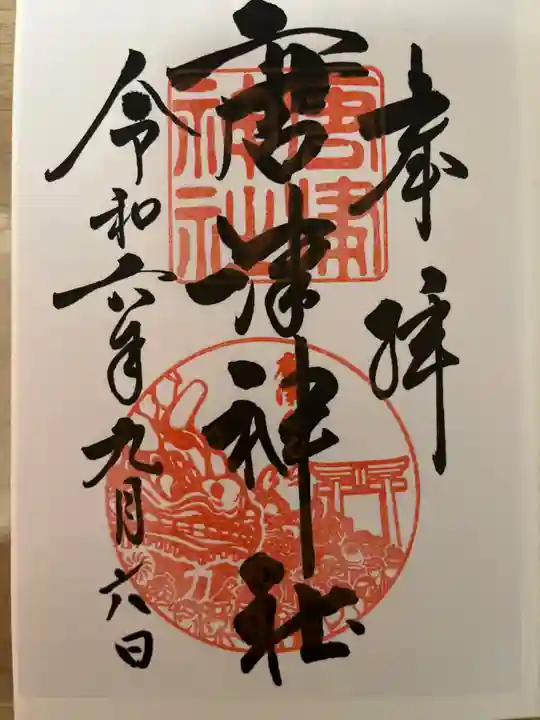 奉拝
唐津神社
唐津
神社
令和六年九月六日